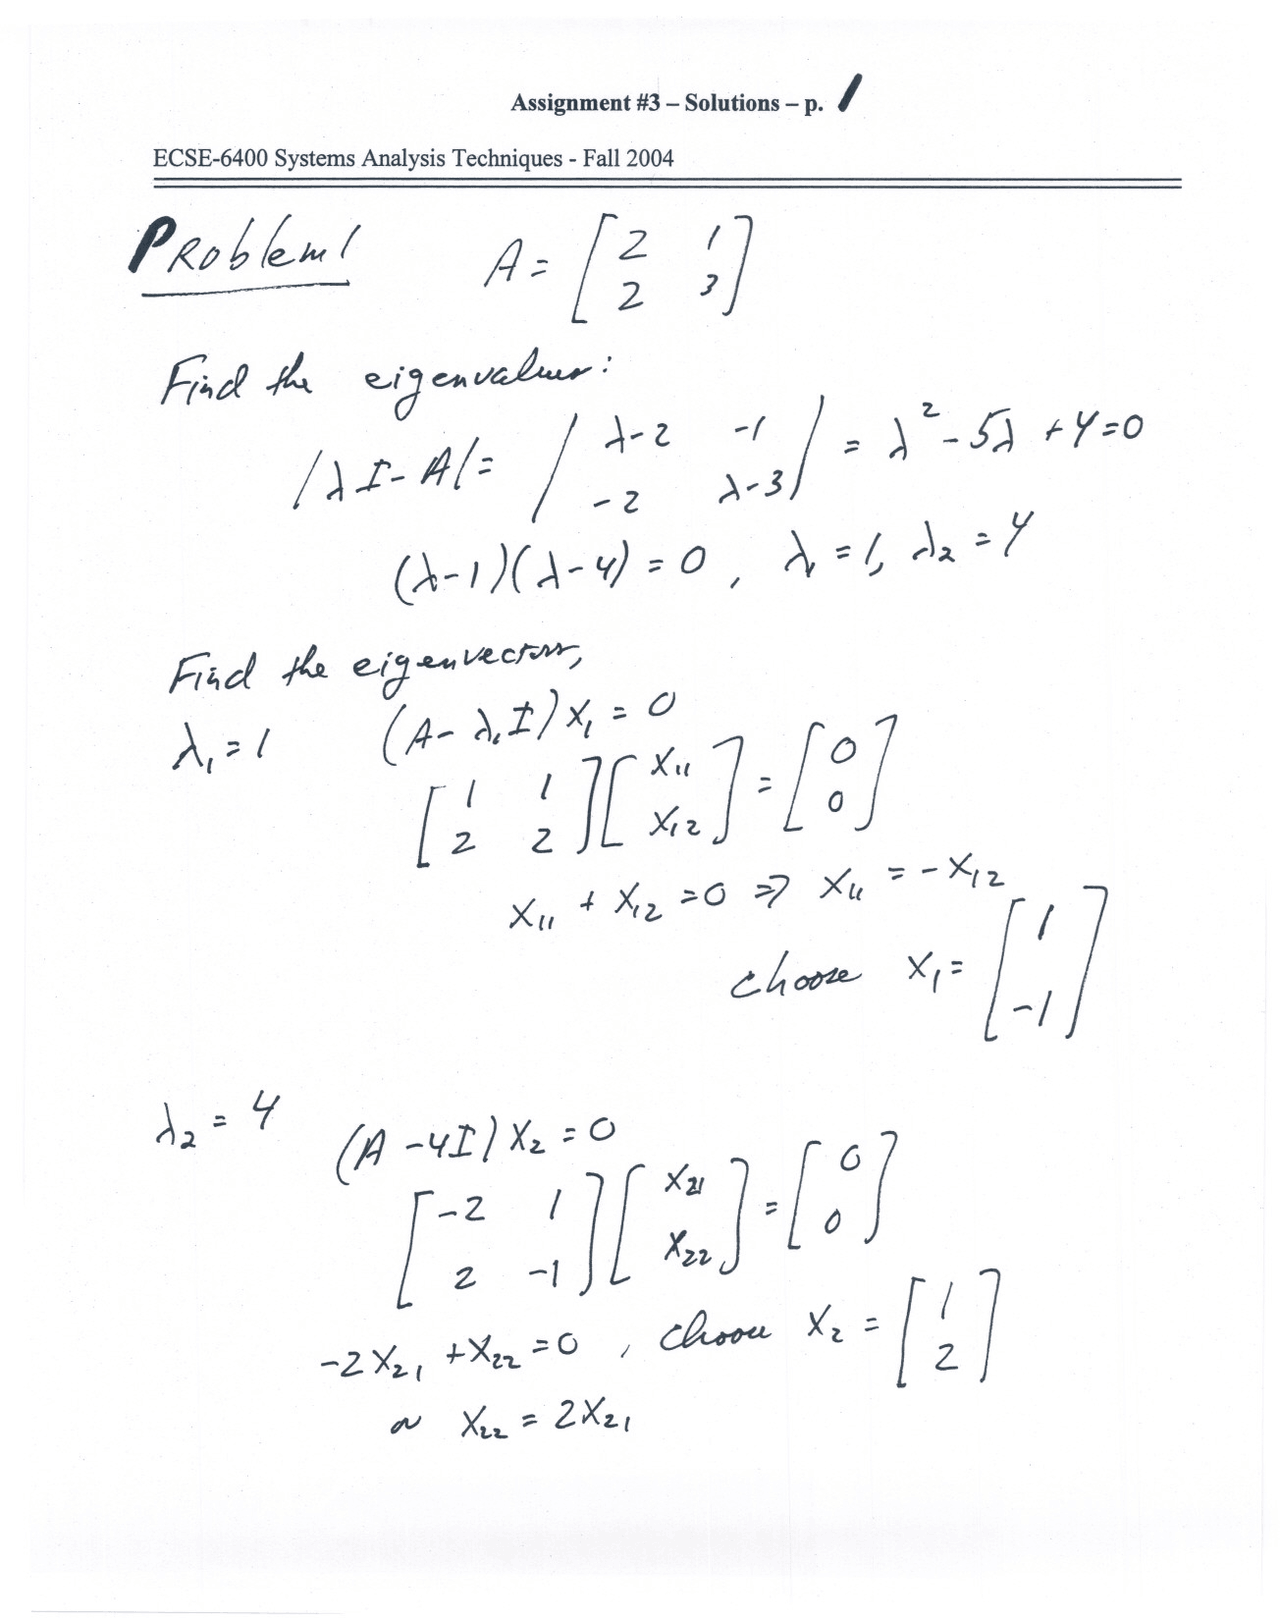 Assignment #3 – Solutions – p. 1
ECSE-6400 Systems Analysis Techniques - Fall 2004
Problem 1 A = [2 1; 2 3]
Find the eigenvalues:
|λI - A| = |λ-2 -1; -2 λ-3| = λ² - 5λ + 4 = 0
(λ-1)(λ-4) = 0, λ₁ = 1, λ₂ = 4
Find the eigenvectors,
λ₁ = 1 (A - λ₁I) X₁ = 0
[1 1; 2 2] [X₁₁; X₁₂] = [0; 0]
X₁₁ + X₁₂ = 0 ⇒ X₁₁ = -X₁₂
choose X₁ = [1; -1]
λ₂ = 4 (A - 4I) X₂ = 0
[-2 1; 2 -1] [X₂₁; X₂₂] = [0; 0]
-2X₂₁ + X₂₂ = 0, choose X₂ = [1; 2]
or X₂₂ = 2X₂₁